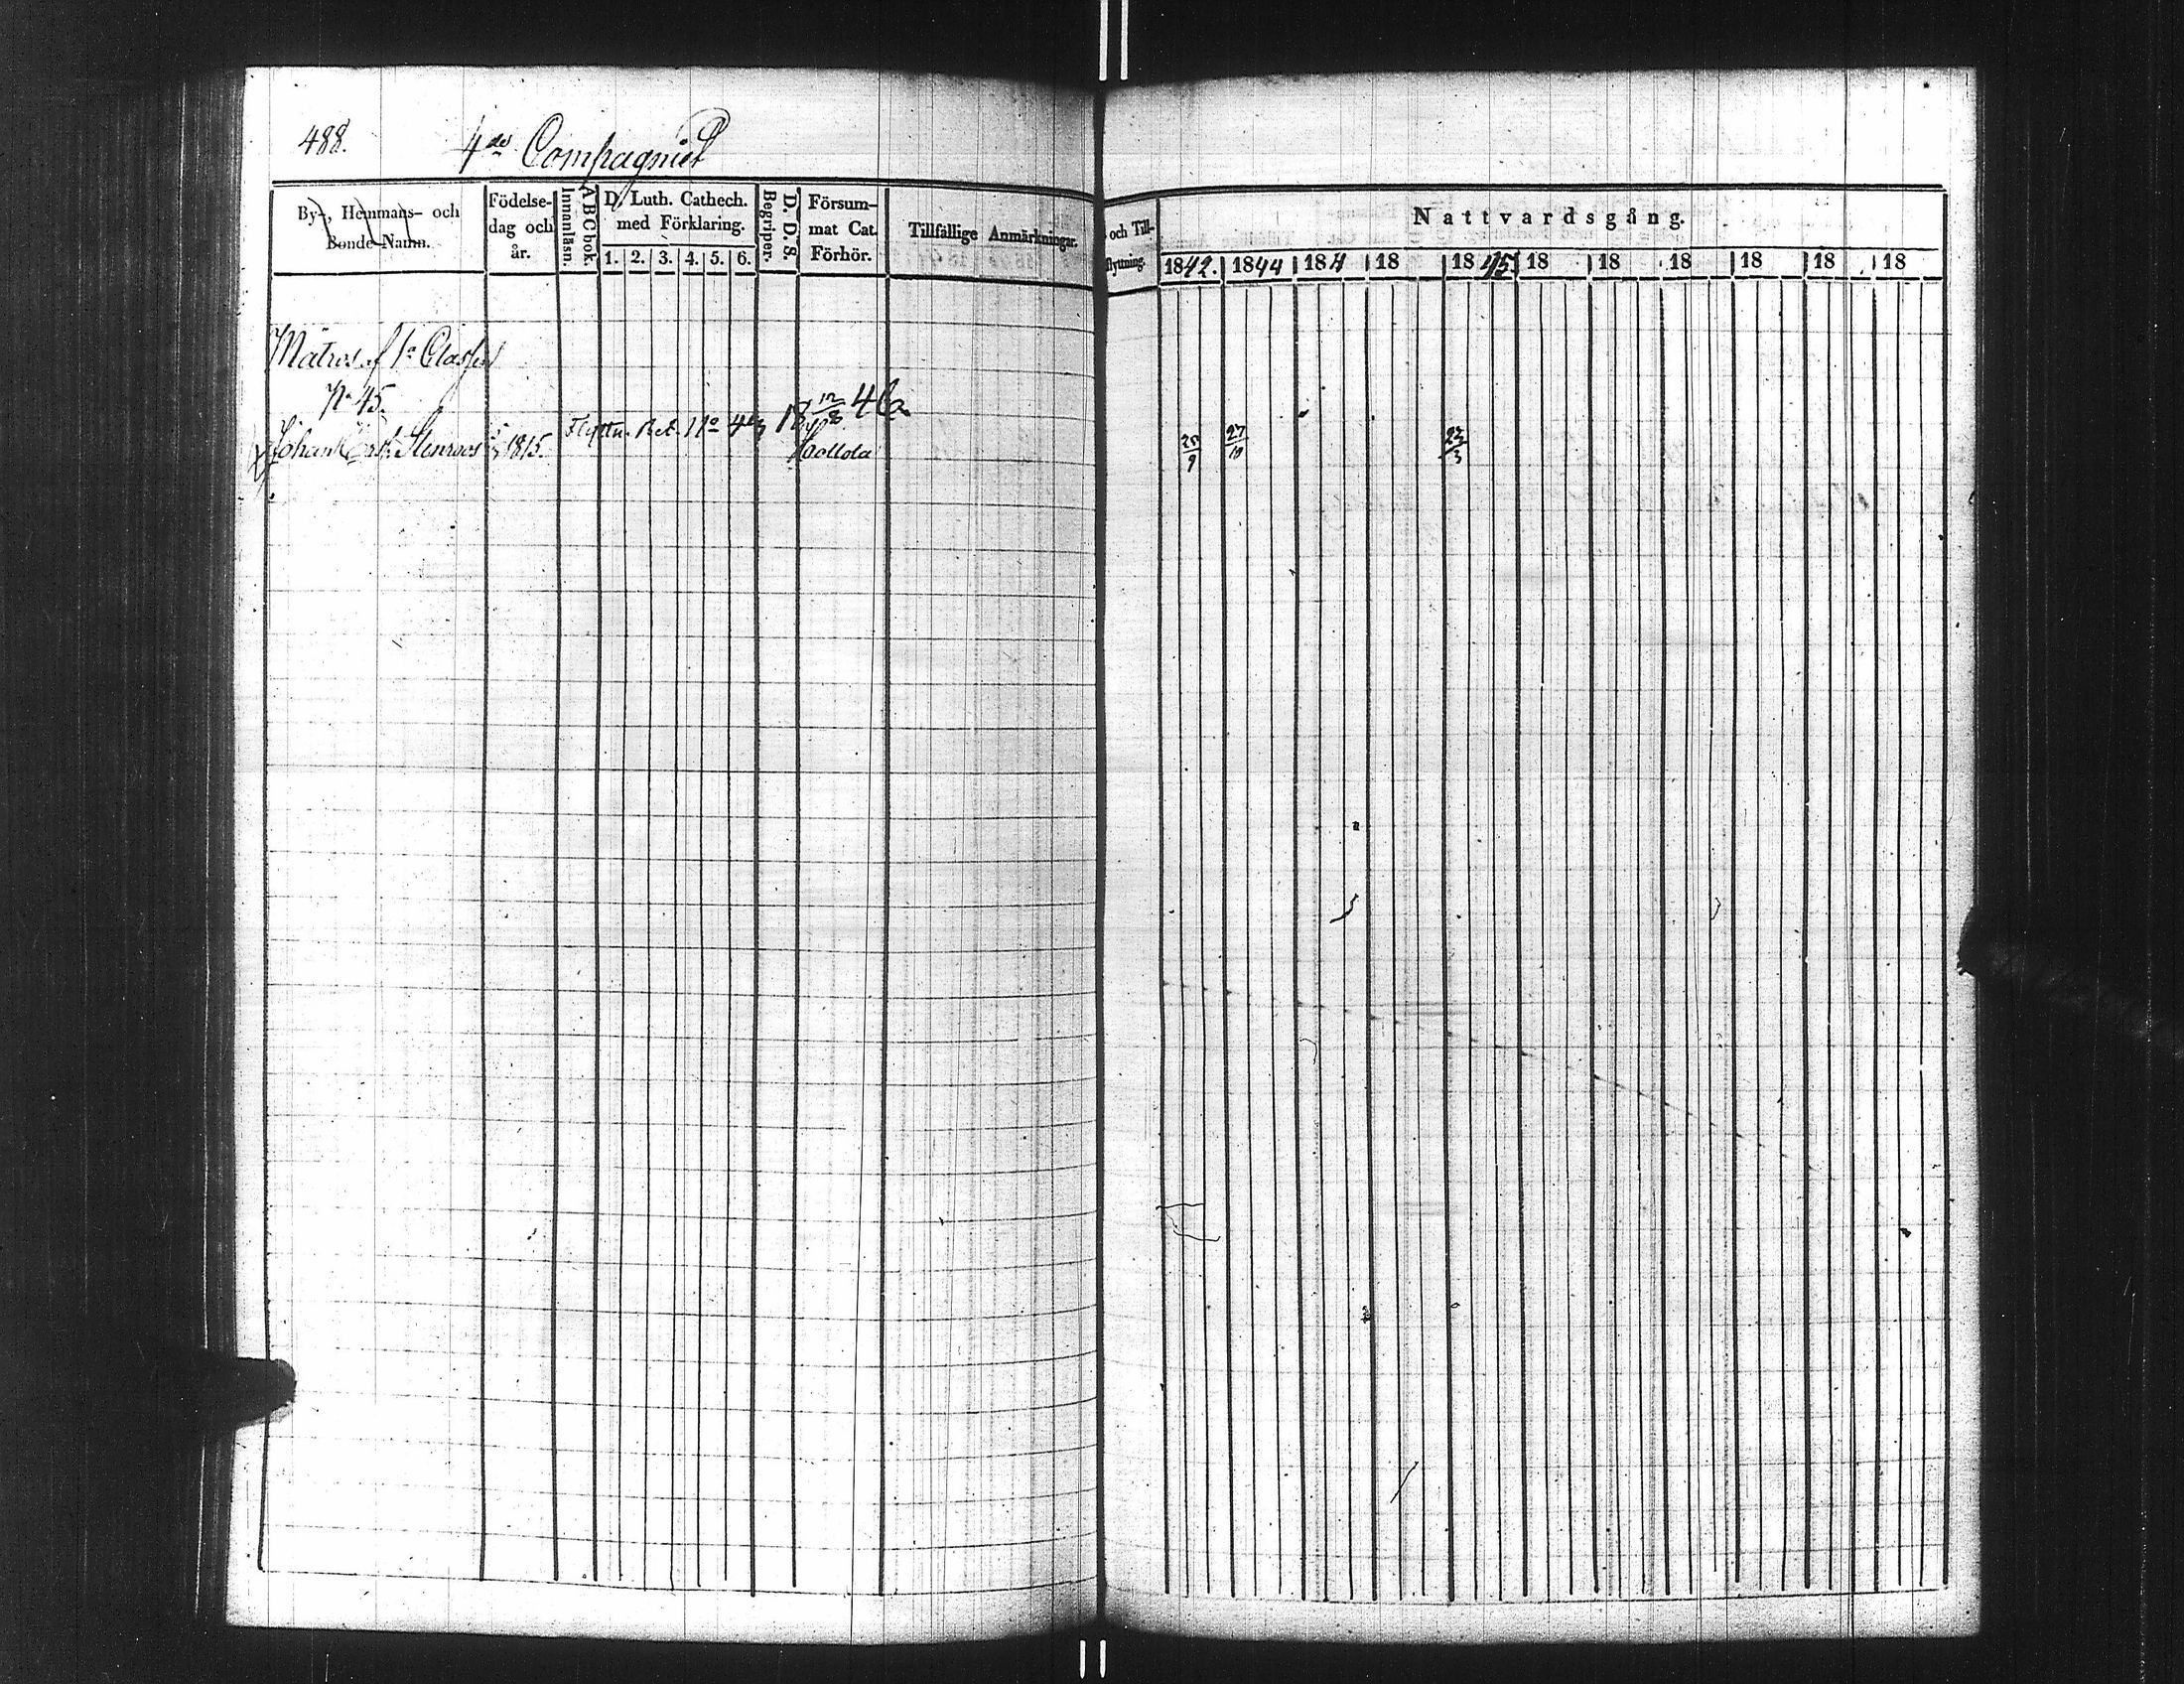 488. 4de Compagniet
By-, Hemmans- och Bonde-Namn.
Födelse-dag och år.
Innanläsn.
ABC bok.
D. Luth. Cathech. med Förklaring.
1. 2. 3. 4. 5. 6.
Begriper.
D. D. S.
Försum-mat Cat. Förhör.
Tillfällige Anmärkningar.
och Till-
flyttning.
Nattvardsgång.
1842. 1844 184 18 1845 18 18 18 18 18 18
Matros af 1a Classen
No 45.
Flyttn. Bet.
Johan Stenroos 1815. Hollola
25/9 27/10 23/3